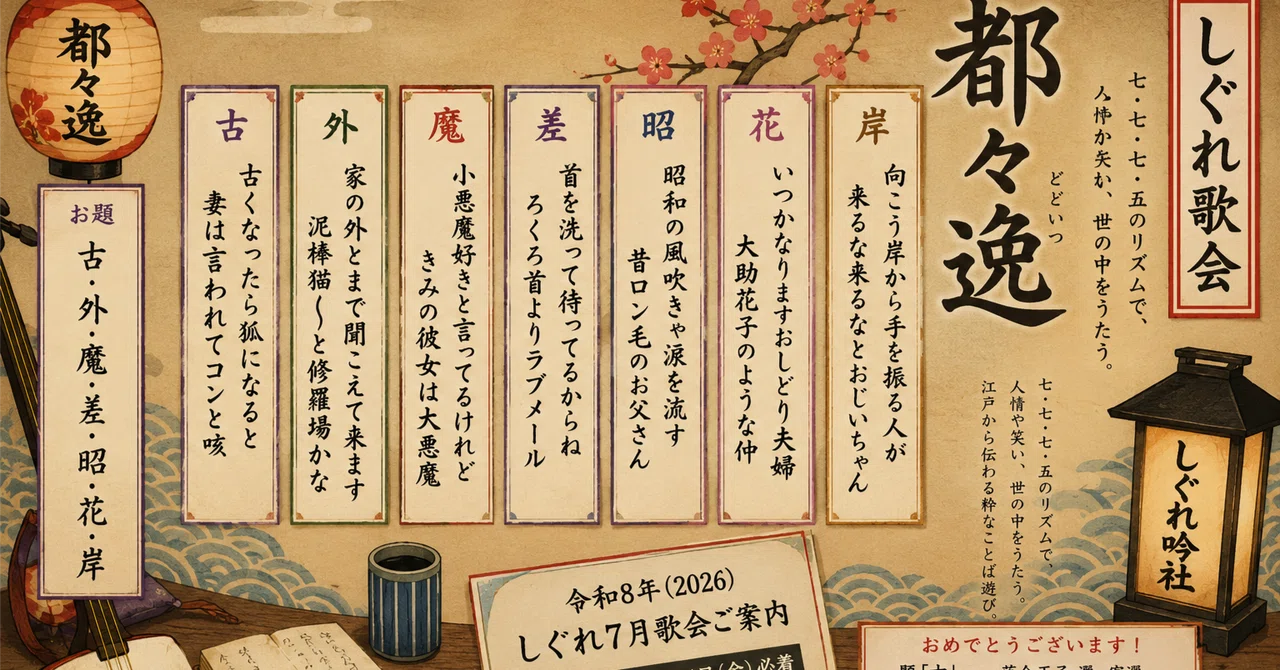 しぐれ歌会
七・七・七・五のリズムで、
世の中をうたう。
都々逸
どどいつ
七・七・七・五のリズムで、
人情や笑い、世の中をうたう。
江戸から伝わる粋なことば遊び。
しぐれ吟社
岸
向こう岸から手を振る人が
来るな来るなとおじいちゃん
花
いつかなりますおしどり夫婦
大助花子のような仲
昭
昭和の風吹きゃ涙を流す
昔ロン毛のお父さん
差
首を洗って待ってるからね
ろくろ首よりラブメール
魔
小悪魔好きと言ってるけれど
きみの彼女は大悪魔
外
家の外とまで聞こえて来ます
泥棒猫〜と修羅場かな
古
古くなったら狐になると
妻は言われてコンと咳
都々逸
お題
古・外・魔・差・昭・花・岸
令和8年(2026)
しぐれ7月歌会ご案内
(金)必着
おめでとうございます!